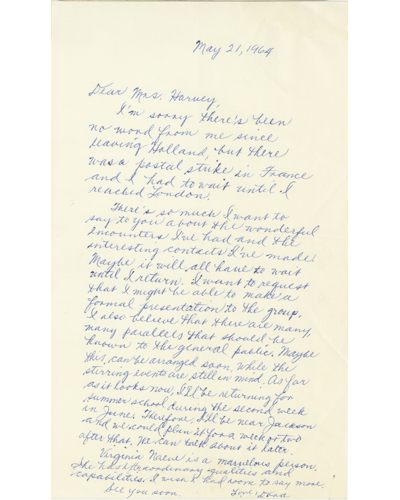 May 21, 1964
Dear Mrs. Harvey,
I'm sorry there's been
no word from me since
leaving Holland, but there
was a postal strike in France
and I had to wait until I
reached London.
There's so much I want to
say to you about the wonderful
encounters I've had and the
interesting contacts I've made.
Maybe it will all have to wait
until I return. I want to request
that I might be able to make a
formal presentation to the group.
I also believe that there are many,
many parallels that should be
known to the general public. Maybe
this can be arranged soon, while the
stirring events are still in mind. As far
as it looks now, I'll be returning for
summer school during the second week
in June. Therefore, I'll be near Jackson
and we could plan it for a week or two
after that. We can talk about it later.
Virginia Naeve is a marvelous person.
She has extraordinary qualities and
capabilities. I wish I had room to say more.
See you soon.
Love, Dora